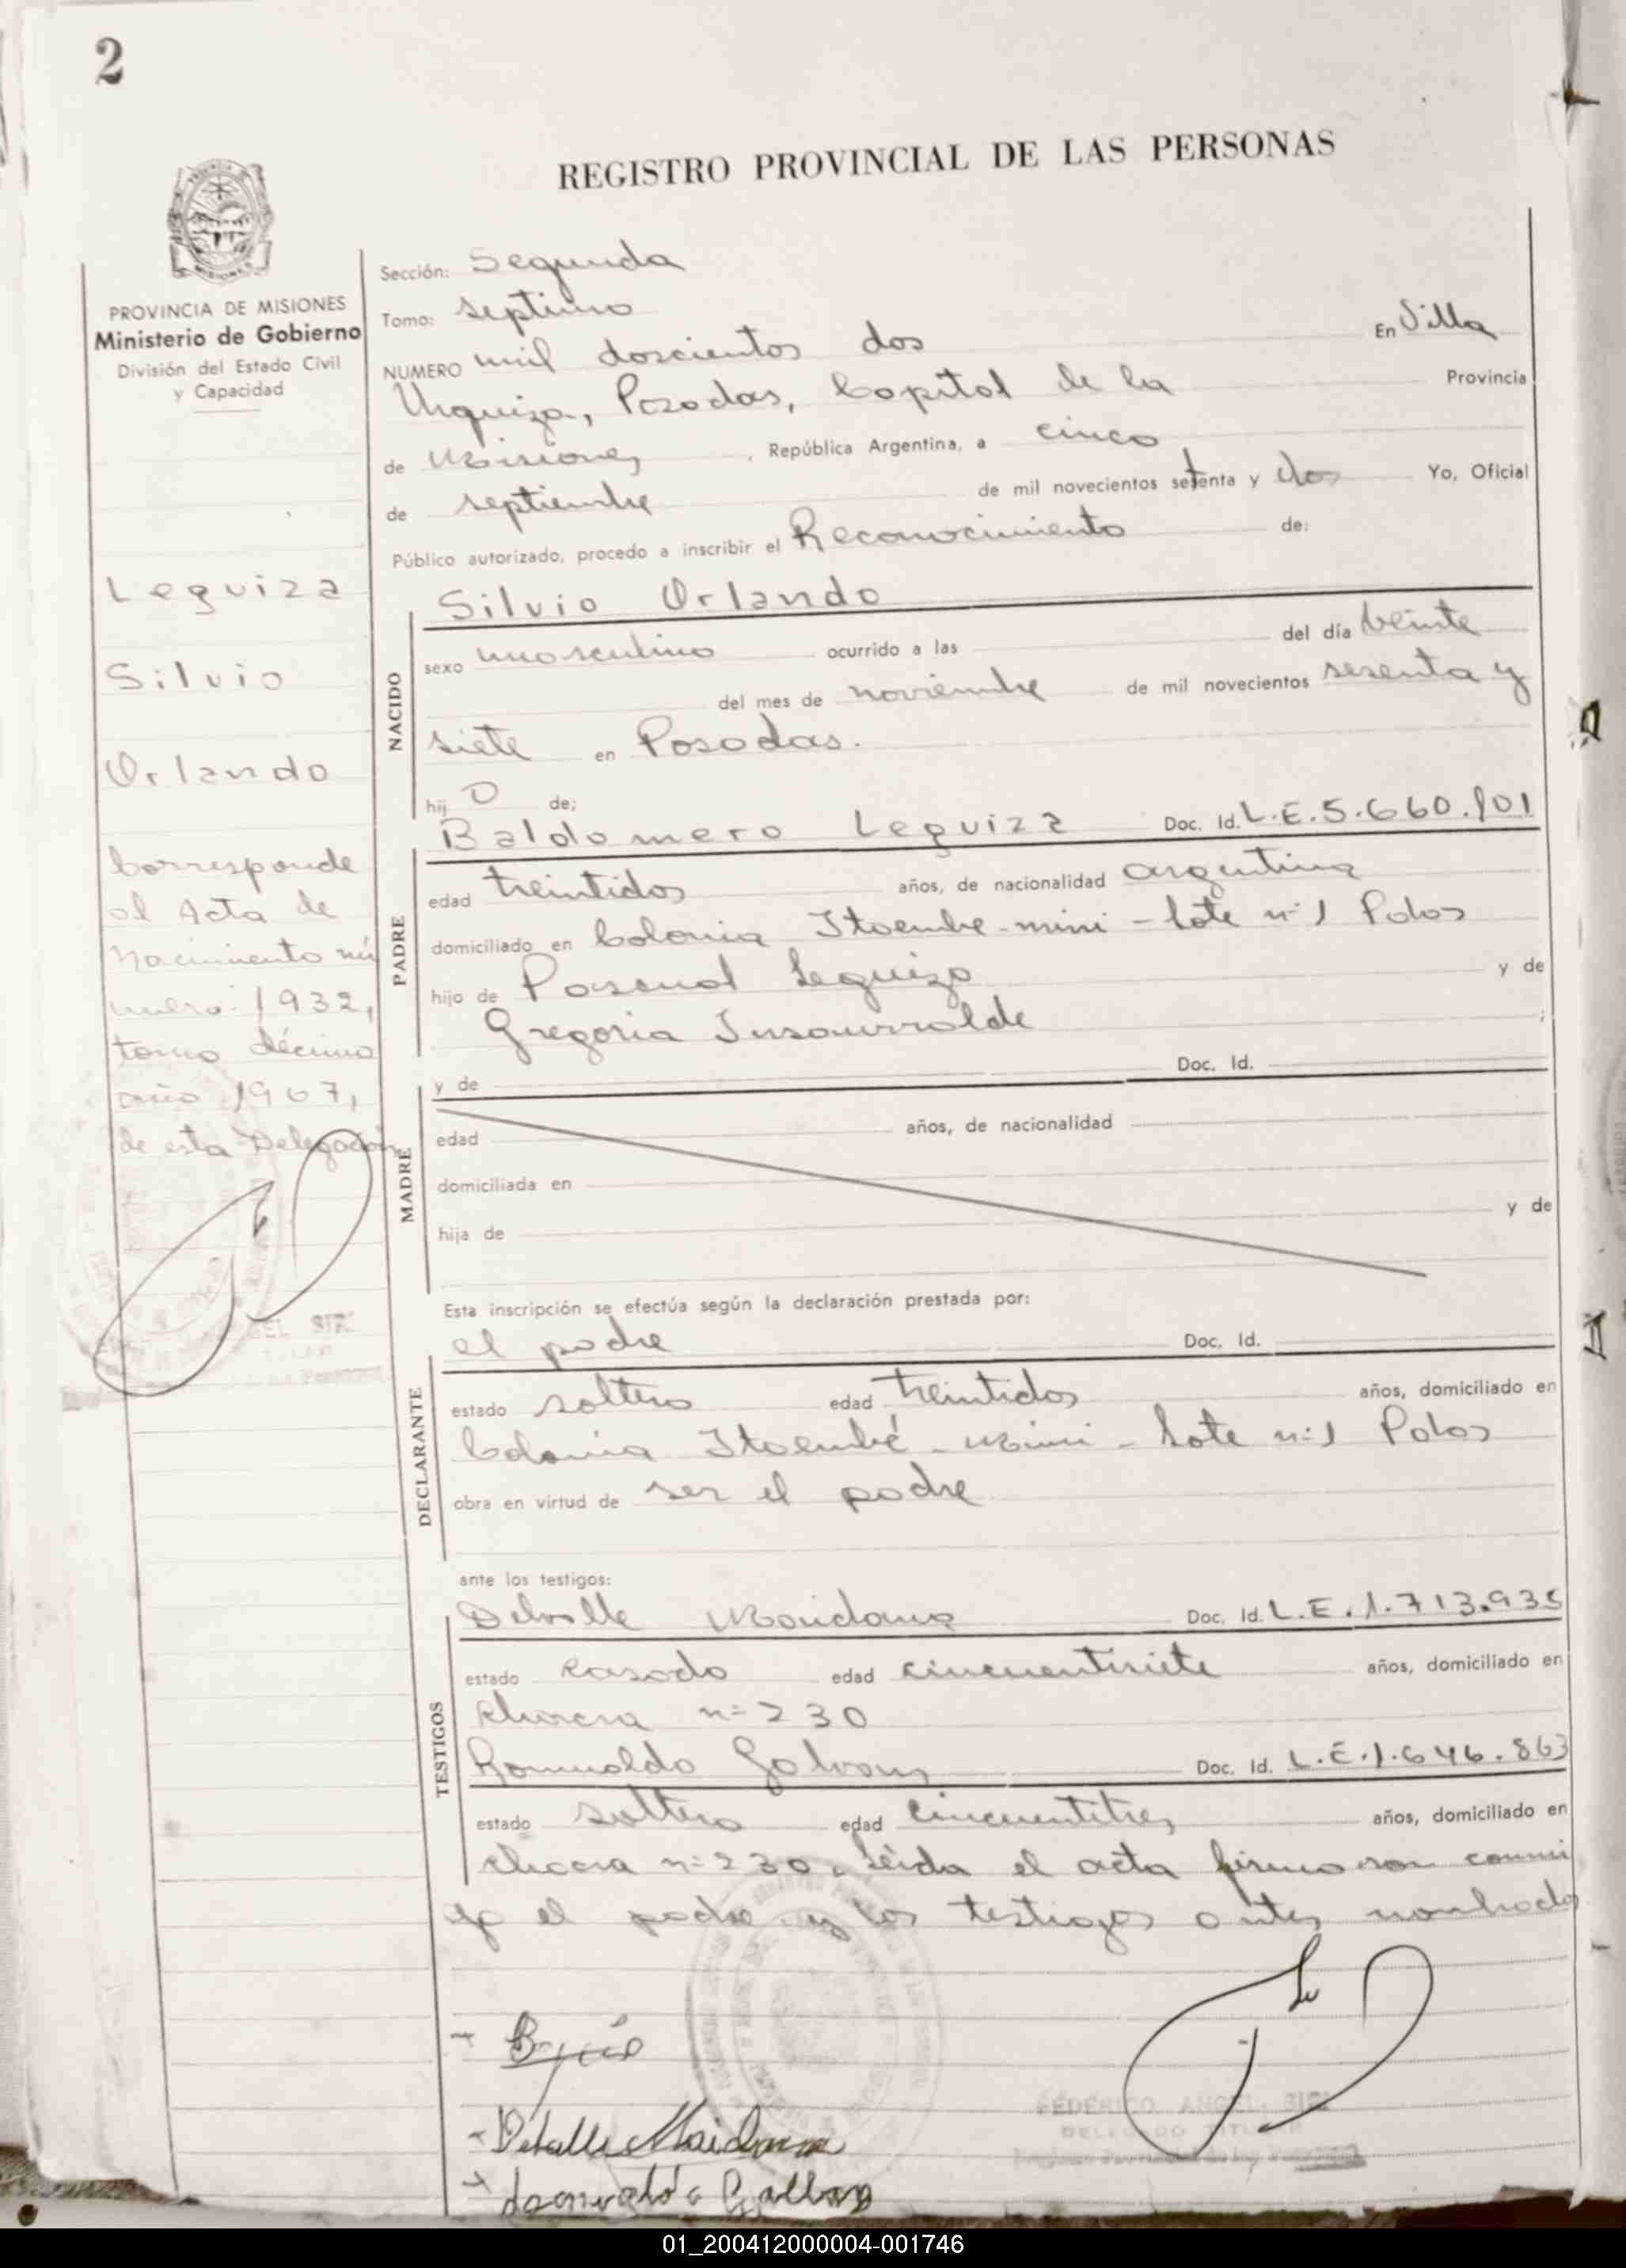 2
REGISTRO PROVINCIAL DE LAS PERSONAS
PROVINCIA DE MISIONES
Ministerio de Gobierno
División del Estado Civil
y Capacidad
Leguiza
Silvio
Orlando
Corresponde
al Acta de
nacimiento nú
mero: 1932,
tomo décimo
año 1967,
de esta Delegación
Sección: Segunda
Tomo: septimo
NUMERO mil doscientos dos En Villa
Urquiza, Posadas, Capital de la Provincia
de Misiones, República Argentina, a cinco
de septiembre de mil novecientos setenta y dos Yo, Oficial
Público autorizado, procedo a inscribir el Reconocimiento de:
NACIDO
Silvio Orlando
sexo masculino ocurrido a las del día veinte
del mes de noviembre de mil novecientos sesenta y
siete en Posadas.
hijo de;
PADRE
Baldomero Leguiza Doc. Id. L.E.5.660.901
edad treintidos años, de nacionalidad argentina
domiciliado en Colonia Itaembe-mini - lote n:1 Pdas
hijo de Pascual Leguiza y de
Gregoria Insaurralde ;
MADRE
y de Doc. Id.
edad años, de nacionalidad
domiciliada en
hija de y de
Esta inscripción se efectúa según la declaración prestada por:
DECLARANTE
el padre Doc. Id.
estado soltero edad treintidos años, domiciliado en
Colonia Itaembé - mini - Lote n:1 Pdas
obra en virtud de ser el padre
ante los testigos:
TESTIGOS
Delvalle Maidana Doc. Id. L.E.1.713.935
estado casado edad cincuentisiete años, domiciliado en
chacra n:230
Romualdo Galvan Doc. Id. L.E.1.646.863
estado soltero edad cincuentitres años, domiciliado en
chacra n:230. Leída el acta firmaron conmi
go el padre y los testigos antes nombrados
Delvalle Maidana
FEDERICO ANGEL
DELEGADO TITULAR
01_200412000004-001746